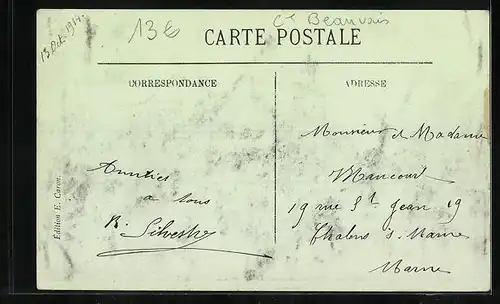 13 Oct. 1914.
13€
Ct Beauvais
CARTE POSTALE
CORRESPONDANCE
ADRESSE
Amitiés
a tous
R. Silvestre
Monsieur et Madame
Maucourt
19 rue St Jean 19
Chalons s. Marne
Marne
Edition E. Caron.